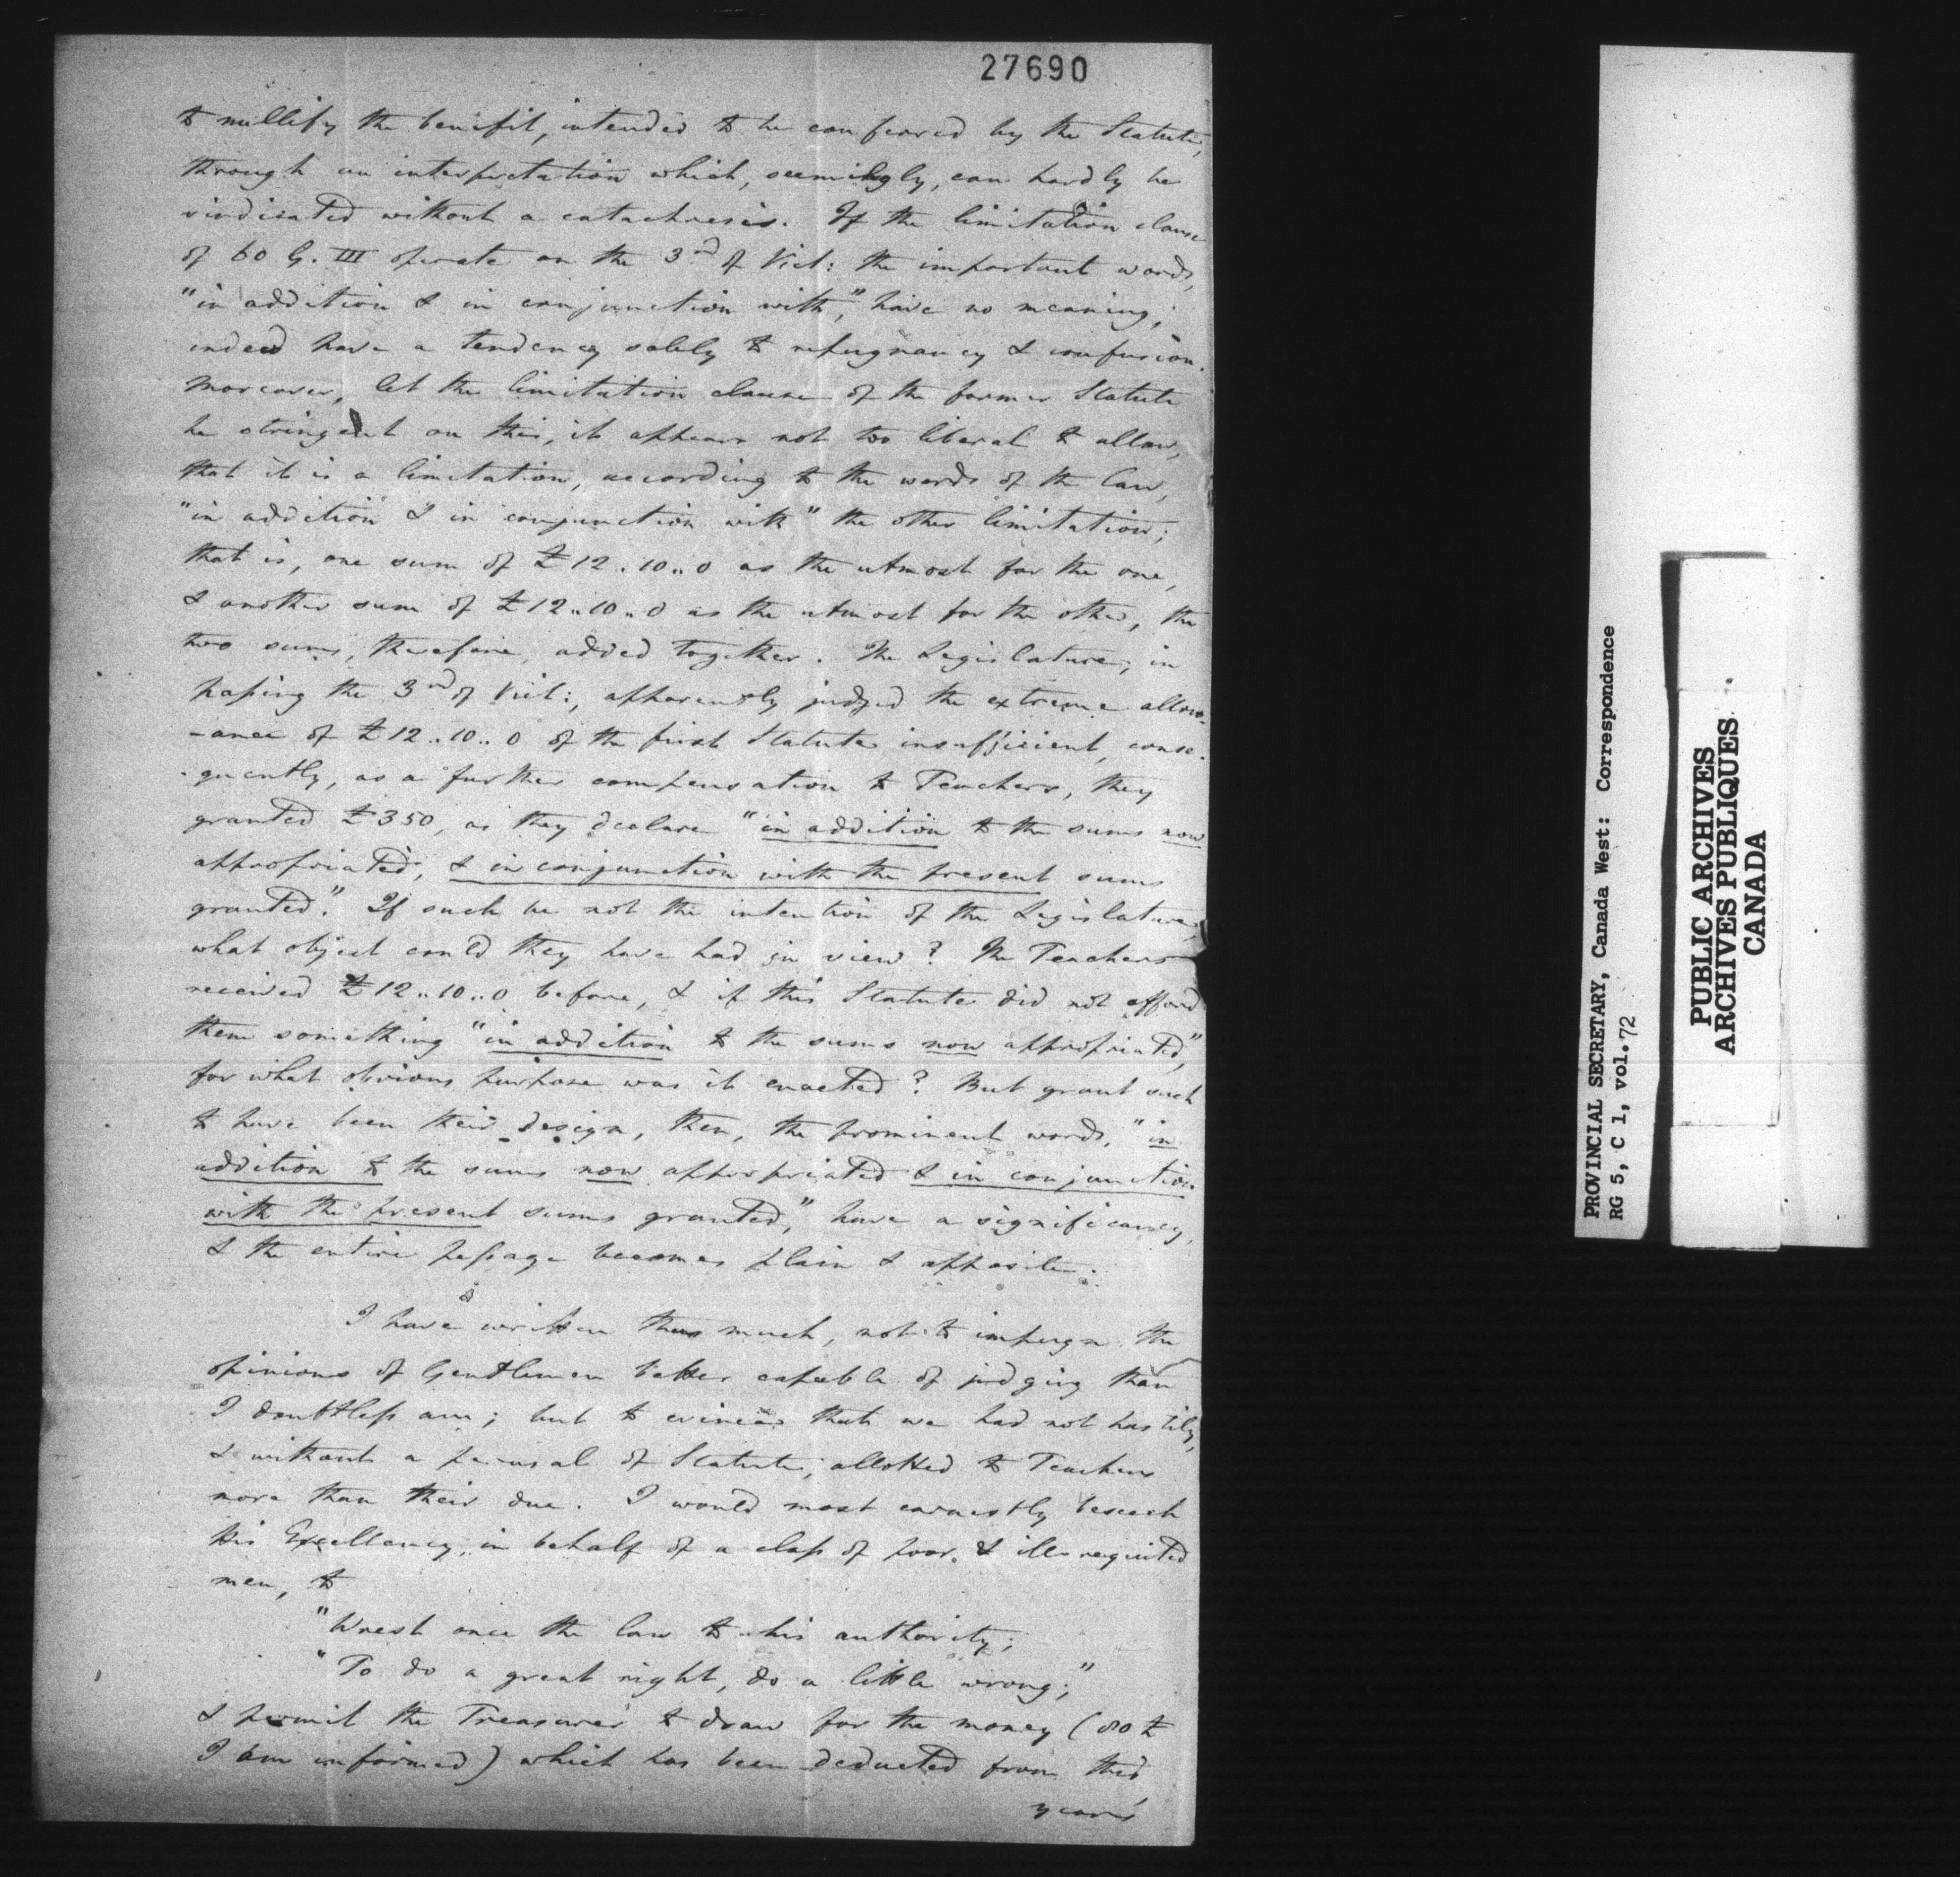 27690
to nullify the benifit, intended to be conferred by the Statute,
through an interpretation which, seemingly, can hardly be
vindicated without a catachresis. If the limitation clause
of 60 G. III operate on the 3rd of Vict: the important words,
"in addition & in conjunction with," have no meaning;
indeed have a tendency solely to repugnancy & confusion.
Moreover, let the limitation clause of the former Statute
be stringent on this, it appears not too liberal to allow,
that it is a limitation, according to the words of the Law,
"in addition & in conjunction with" the other limitation;
that is, one sum of £12.10..0 as the utmost for the one,
& another sum of £12..10..0 as the utmost for the other, the
two sums, therefore, added together. The Legislature, in
passing the 3rd of Vict:, apparently judged the extreme allow-
-ance of £12..10..0 of the first Statute insufficient, conse-
-quently, as a further compensation to Teachers, they
granted £350, as they declare "in addition to the sums now
appropriated, & in conjunction with the present sums
granted." If such be not the intention of the Legislature,
what object could they have had in view? The Teachers
received £12..10..0 before, & if this Statute did not afford
them something "in addition to the sums now appropriated,"
for what obvious purpose was it enacted? But grant such
to have been their design, then, the prominent words, "in
addition to the sums now appropriated & in conjunction
with the present sums granted," have a significancy,
& the entire passage becomes plain & apposite.
I have written thus much, not to impugn the
opinions of Gentlemen better capable of judging than
I doubtless am; but to evince that we had not hastily,
& without a perusal of Statute, allotted to Teachers
more than their due. I would most earnestly beseech
his Excellency, in behalf of a class of poor & ill requited
men, to
"Wrest once the law to his authority;
"To do a great right, do a little wrong;"
& permit the Treasurer to draw for the money (80£
I am informed) which has been deducted from this
year's
PROVINCIAL SECRETARY, Canada West: Correspondence
RG 5, C 1, vol.72
PUBLIC ARCHIVES
ARCHIVES PUBLIQUES
CANADA